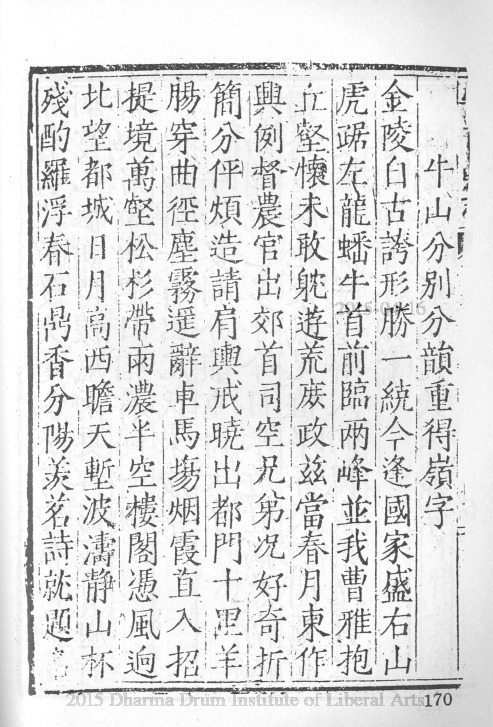 牛山分別分韻重得嶺字
金陵自古誇形勝一統今逢國家盛右山
虎踞左龍蟠牛首前臨兩峰並我曹雅抱
丘壑懷未敢躭遊荒庶政玆當春月東作
興例督農官出郊首司空兄弟况好奇折
簡分伻煩造請肩輿戒曉出都門十里羊
腸穿曲徑塵霧遥辭車馬塲烟霞直入招
提境萬壑松杉帶雨濃半空樓閣憑風迥
北望都城日月高西瞻天塹波濤静山杯
殘酌羅浮春石鼎香分陽羡茗詩就題
2015 Dharma Drum Institute of Liberal Arts
170